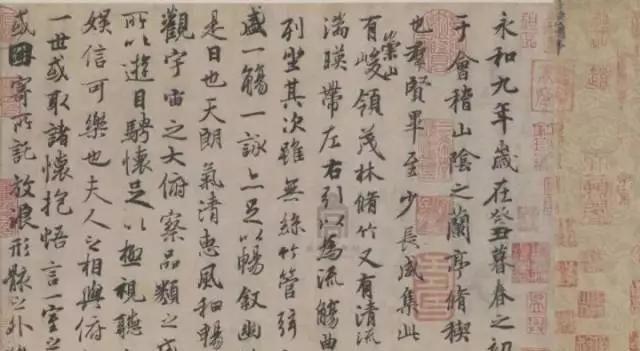 永和九年歲在癸丑暮春之初
于會稽山陰之蘭亭脩稧
也羣賢畢至少長咸集此
崇山
有峻領茂林脩竹又有清流
湍暎帶左右引以為流觴曲
列坐其次雖無絲竹管弦
盛一觴一詠亦足以暢叙幽
是日也天朗氣清惠風和暢
觀宇宙之大俯察品類之盛
所以遊目騁懷足以極視聽
娛信可樂也夫人之相與俯
一世或取諸懷抱悟言一室之
或因寄所託放浪形骸之外